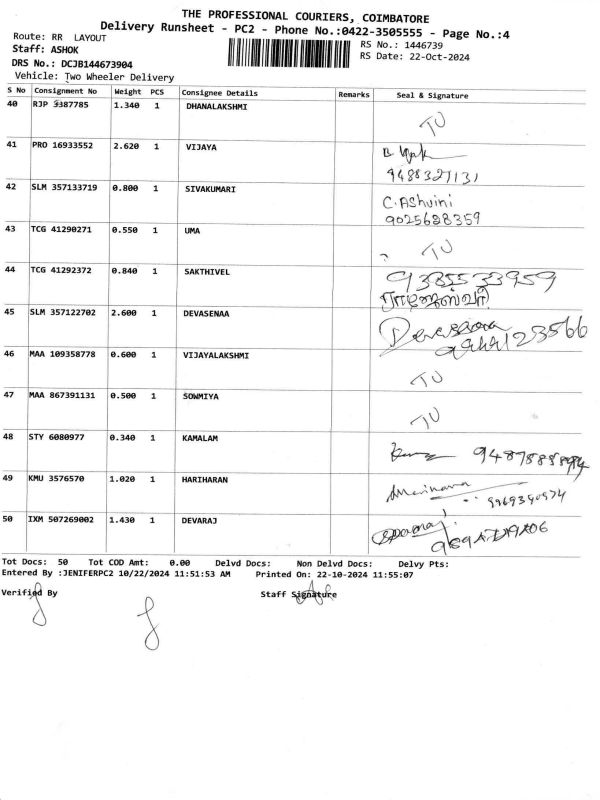 THE PROFESSIONAL COURIERS, COIMBATORE
Delivery Runsheet - PC2 - Phone No.:0422-3505555 - Page No.:4
Route: RR LAYOUT
RS No.: 1446739
Staff: ASHOK
RS Date: 22-Oct-2024
DRS No.: DCJB144673904
Vehicle: Two Wheeler Delivery
S No Consignment No Weight PCS Consignee Details Remarks Seal & Signature
40 RJP 3387785 1.340 1 DHANALAKSHMI
41 PRO 16933552 2.620 1 VIJAYA
9488327131
42 SLM 357133719 0.800 1 SIVAKUMARI C.Ashvini
9025628359
43 TCG 41290271 0.550 1 UMA
44 TCG 41292372 0.840 1 SAKTHIVEL 9385533959
ராஜேஸ்வரி
45 SLM 357122702 2.600 1 DEVASENAA
46 MAA 109358778 0.600 1 VIJAYALAKSHMI
47 MAA 867391131 0.500 1 SOWMIYA
48 STY 6080977 0.340 1 KAMALAM
49 KMU 3576570 1.020 1 HARIHARAN
50 IXM 507269002 1.430 1 DEVARAJ
Tot Docs: 50 Tot COD Amt: 0.00 Delvd Docs: Non Delvd Docs: Delvy Pts:
Entered By :JENIFERPC2 10/22/2024 11:51:53 AM Printed On: 22-10-2024 11:55:07
Verified By Staff Signature